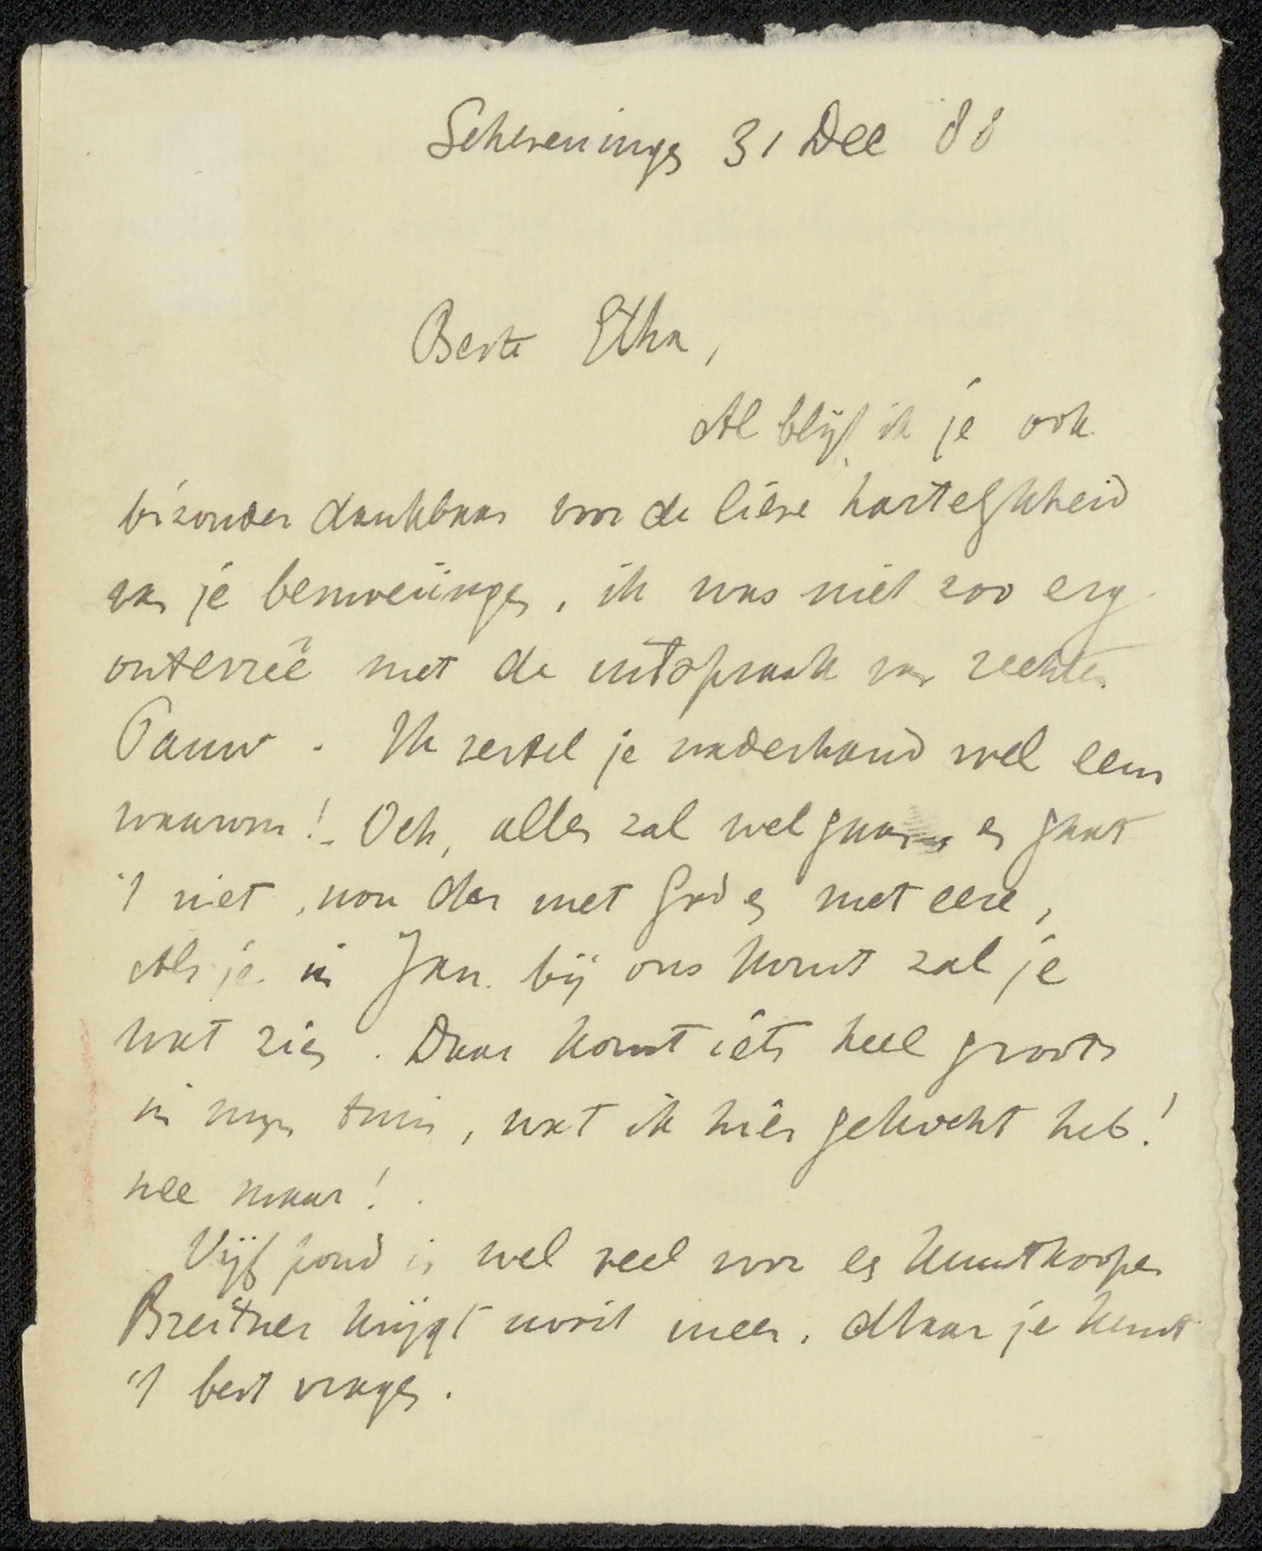 Scheveningen 31 Dec 88
Beste Etha,
Al blijf ik je ook
bizonder dankbaar voor de lieve hartelijkheid
van je bemoeiingen, ik was niet zoo erg
ontevreê met de uitspraak van rechter
Pauw. Ik vertel je naderhand wel eens
waarom! Och, alles zal wel gaan en gaat
't niet, nou dan met God en met eere,
Als je in Jan. bij ons komt zal je
wat zien. Daar komt iets heel groots
in mijn tuin, wat ik hier gekocht heb!
nee maar!
Vijf pond is wel veel voor een kunstkooper
Breitner krijgt nooit meer. Maar je kunt
't best vragen.